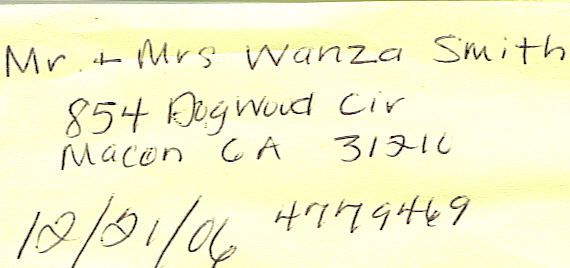 Mr. + Mrs Wanza Smith
854 Dogwood Cir
Macon GA 31210
12/21/06 4779469